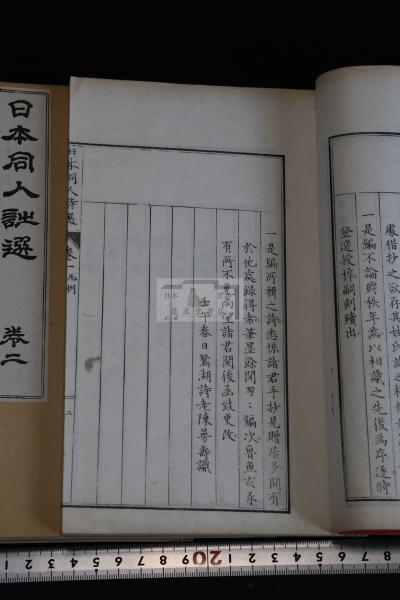 處借抄之欲存其姓氏
一是編不論爵秩年歲以相識之先後為序逐時
登選授梓嗣刻續出
一是編所輯之詩悉係諸君手抄見贈居多間有
於他處錄得者筆墨餘閒匆匆編次魯魚亥豕
有所不免尚望諸君閱後函致更改
壬午春日鴛湖詩老陳曼壽識
日本同人詩選
卷一凡例
二
日本同人詩選
卷二
20